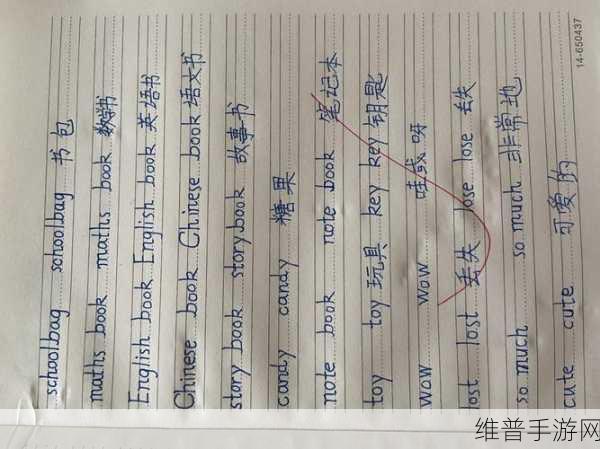 schoolbag schoolbag 书包
maths book maths book 数学书
English book English book 英语书
Chinese book Chinese book 语文书
story book story book 故事书
candy candy 糖果
note book note book 笔记本
toy toy 玩具 key key 钥匙
wow wow 哇 或 呀
lost lost 丢失 lose lose 丢失
so much so much 非常地
cute cute 可爱的
14-650437
维普手游网